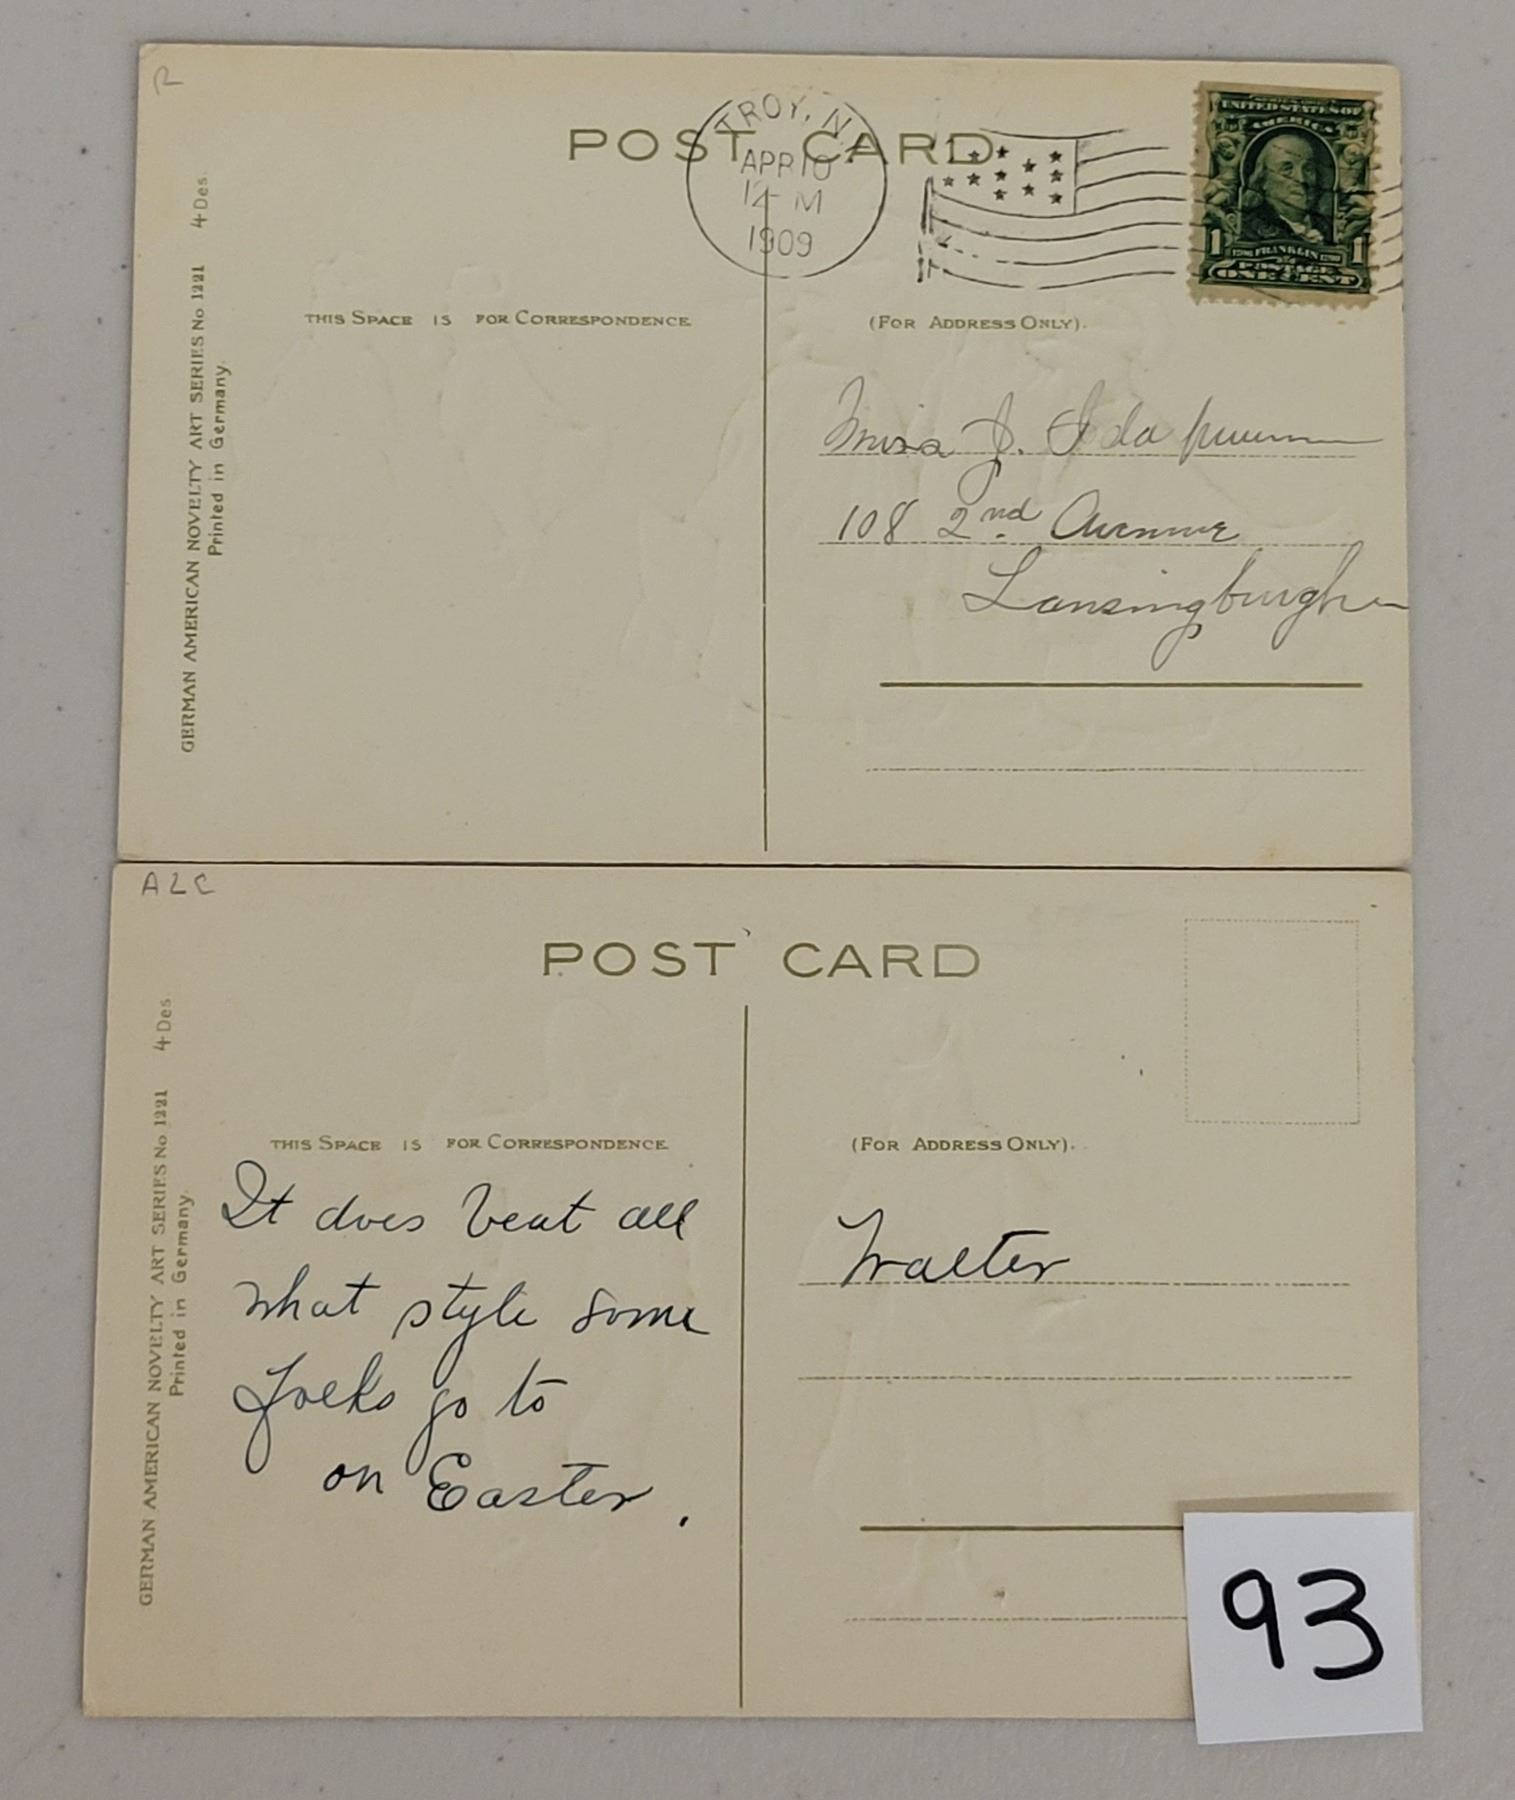 R
POST CARD
TROY, N.Y.
APR 10
12-M
1909
UNITED STATES OF
AMERICA
1 FRANKLIN 1
POSTAGE
ONE CENT
THIS SPACE IS FOR CORRESPONDENCE
(FOR ADDRESS ONLY).
GERMAN AMERICAN NOVELTY ART SERIES No 1221 4 Des.
Printed in Germany.
Miss J. Ida
108 2nd. Avenue
Lansingburgh
A2C
POST CARD
THIS SPACE IS FOR CORRESPONDENCE
(FOR ADDRESS ONLY).
GERMAN AMERICAN NOVELTY ART SERIES No 1221 4 Des.
Printed in Germany.
It does beat all
what style some
folks go to
on Easter.
Walter
93